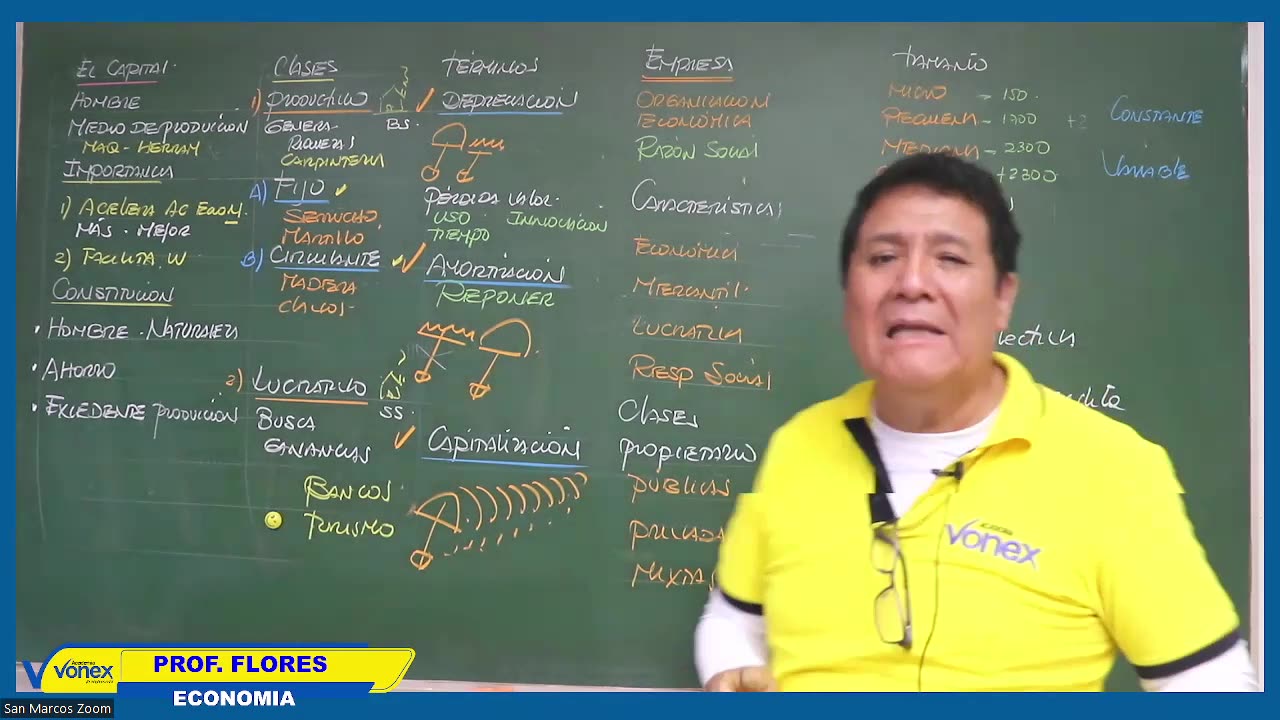 EL CAPITAL.
HOMBRE
MEDIO DE PRODUCCION
MAQ - HERRAM
IMPORTANCIA
1) ACELERA AC ECOM.
MÁS - MEJOR
2) FACILITA W
CONSTITUCION
• HOMBRE - NATURALEZA
• AHORRO
• EXCEDENTE PRODUCCIÓN
CLASES
1) PRODUCTIVO
BS.
GENERA
RIQUEZAS
CARPINTERIA
A) FIJO
SERRUCHO
MARTILLO
B) CIRCULANTE
MADERA
CLAVOS
2) LUCRATIVO
SS.
BUSCA
GANANCIAS
BANCOS
TURISMO
TÉRMINOS
DEPRECIACION
PÉRDIDA VALOR
USO INNOVACION
TIEMPO
AMORTIZACION
REPONER
CAPITALIZACIÓN
EMPRESA
ORGANIZACION
ECONÓMICA
RAZÓN SOCIAL
CARACTERÍSTICAS
ECONÓMICA
MERCANTIL
LUCRATIVA
RESP SOCIAL
CLASES
PROPIETARIO
PÚBLICAS
PRIVADA
MIXTAS
TAMAÑO
MICRO - 150
PEQUEÑA - 1700
MEDIANA - 2300
+2300
CONSTANTE
VARIABLE
ACADEMIA
VONEX
Academia
VONEX
PROF. FLORES
ECONOMIA
San Marcos Zoom